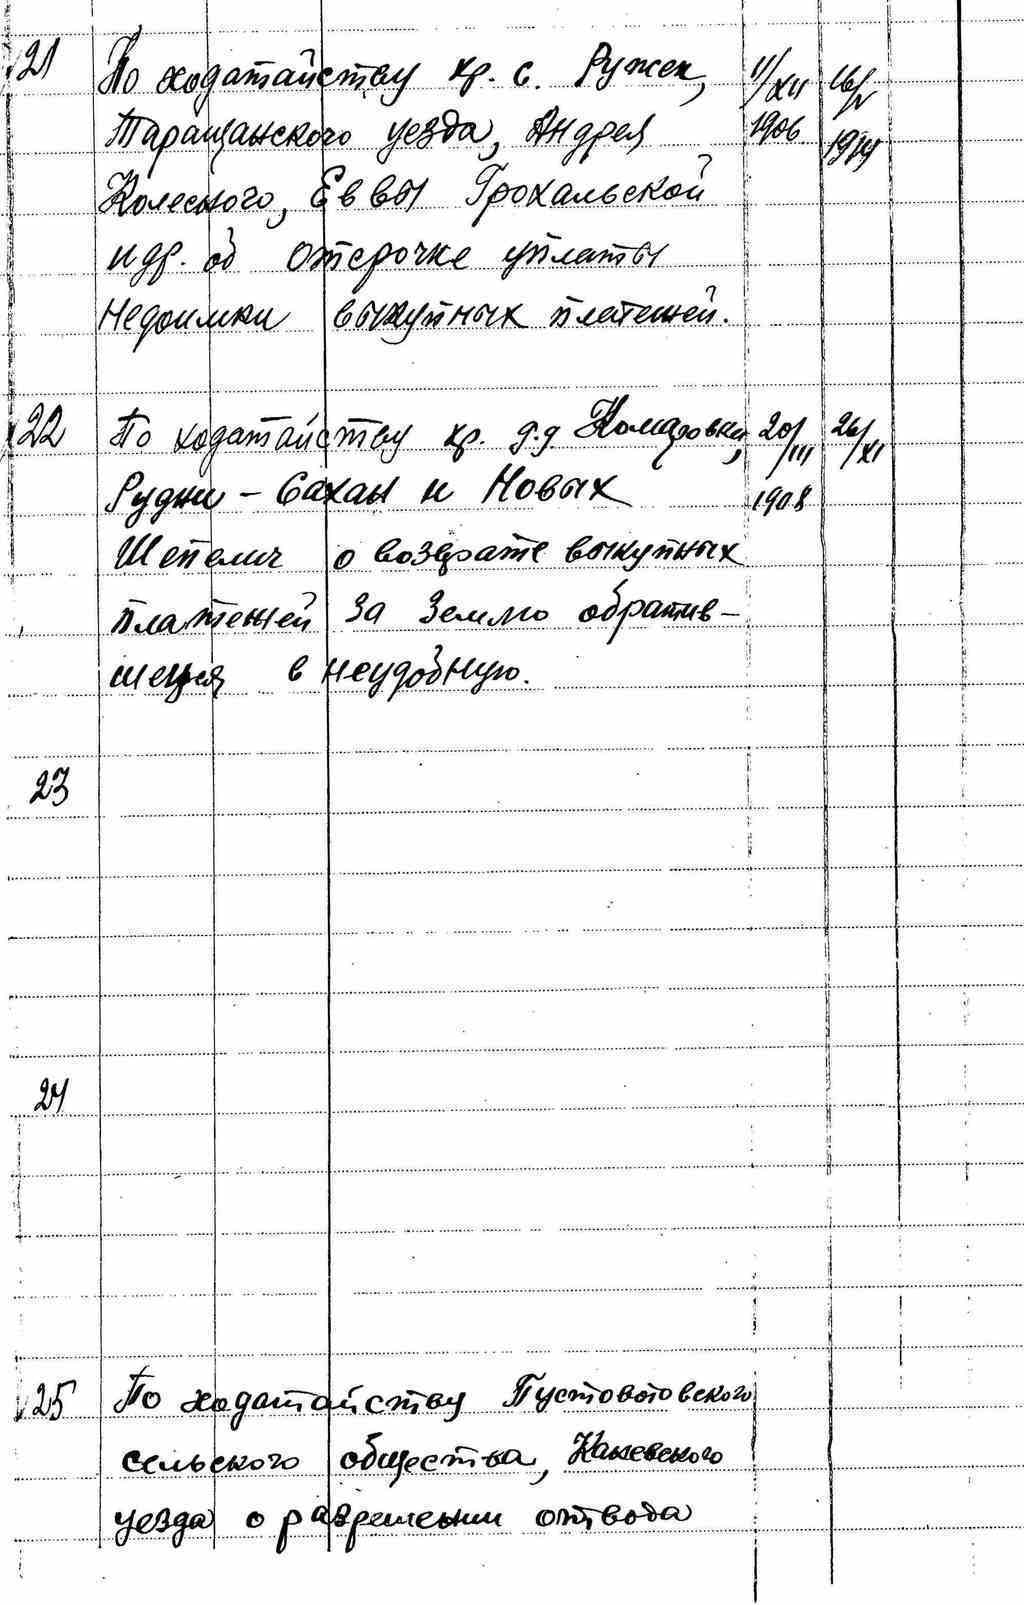 21 По ходатайству кр. с. Ружек, 11/XII
Таращанского уезда, Андрея 1906 1914
Колесного, Еввы Грохальской
и др. об отсрочке уплаты
недоимки выкупных платежей.
22 По ходатайству кр. д.д. Комаровки, 20/III 26/XI
Рудни - Сахан и Новых 1908
Шепелич о возврате выкупных
платежей за землю обратив-
шуюся в неудобную.
23
24
25 По ходатайству Пустовотовского
сельского общества, Каневского
уезда о разрешении отвода